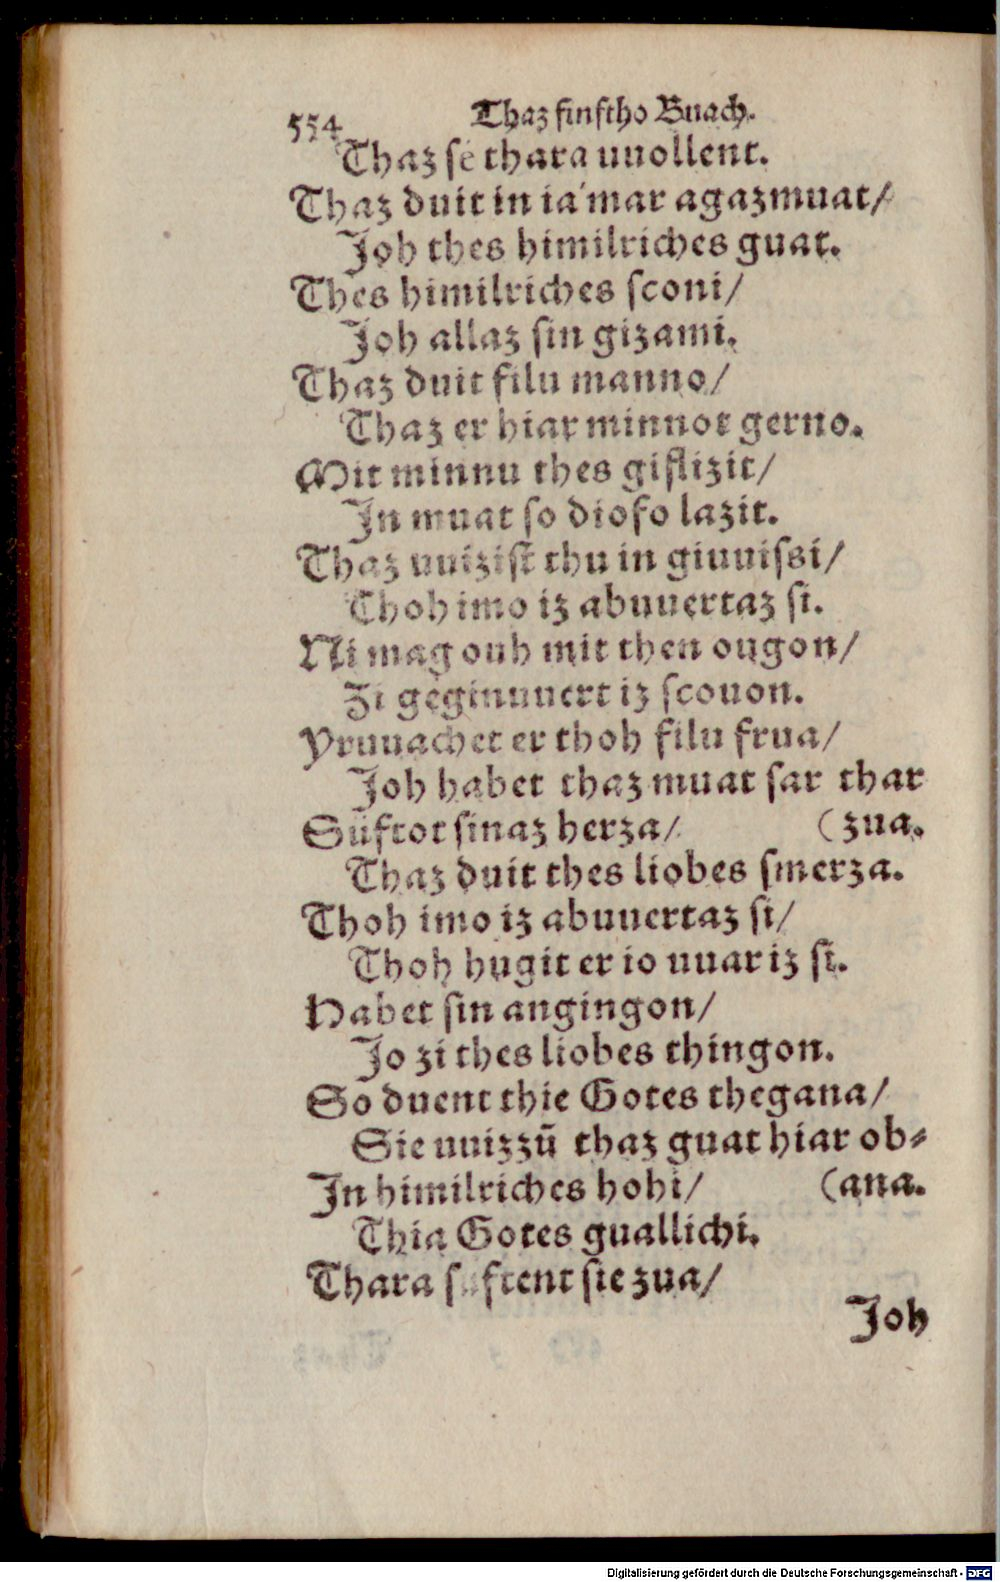 554 Thaz finftho Buach.
Thaz se thara uuollent.
Thaz duit in ia mar agazmuat/
Joh thes himilriches guat.
Thes himilriches sconi/
Joh allaz sin gizami.
Thaz duit filu manno/
Thaz er hiar minnot gerno.
Mit minnu thes giflizit/
In muat so diofo lazit.
Thaz uuizist thu in giuuissi/
Thoh imo iz abuuertaz si.
Ni mag ouh mit then ougon/
Zi geginuuert iz scouon.
Yruuachet er thoh filu frua/
Joh habet thaz muat sar thar
Süftot sinaz herza/ (zua.
Thaz duit thes liobes smerza.
Thoh imo iz abuuertaz si/
Thoh hugit er io uuar iz si.
Habet sin angingon/
Jo zi thes liobes thingon.
So duent thie Gotes thegana/
Sie uuizzū thaz guat hiar ob⸗
In himilriches hohi/ (ana.
Thia Gotes guallichi.
Thara suftent sie zua/
Joh
Digitalisierung gefördert durch die Deutsche Forschungsgemeinschaft - DFG